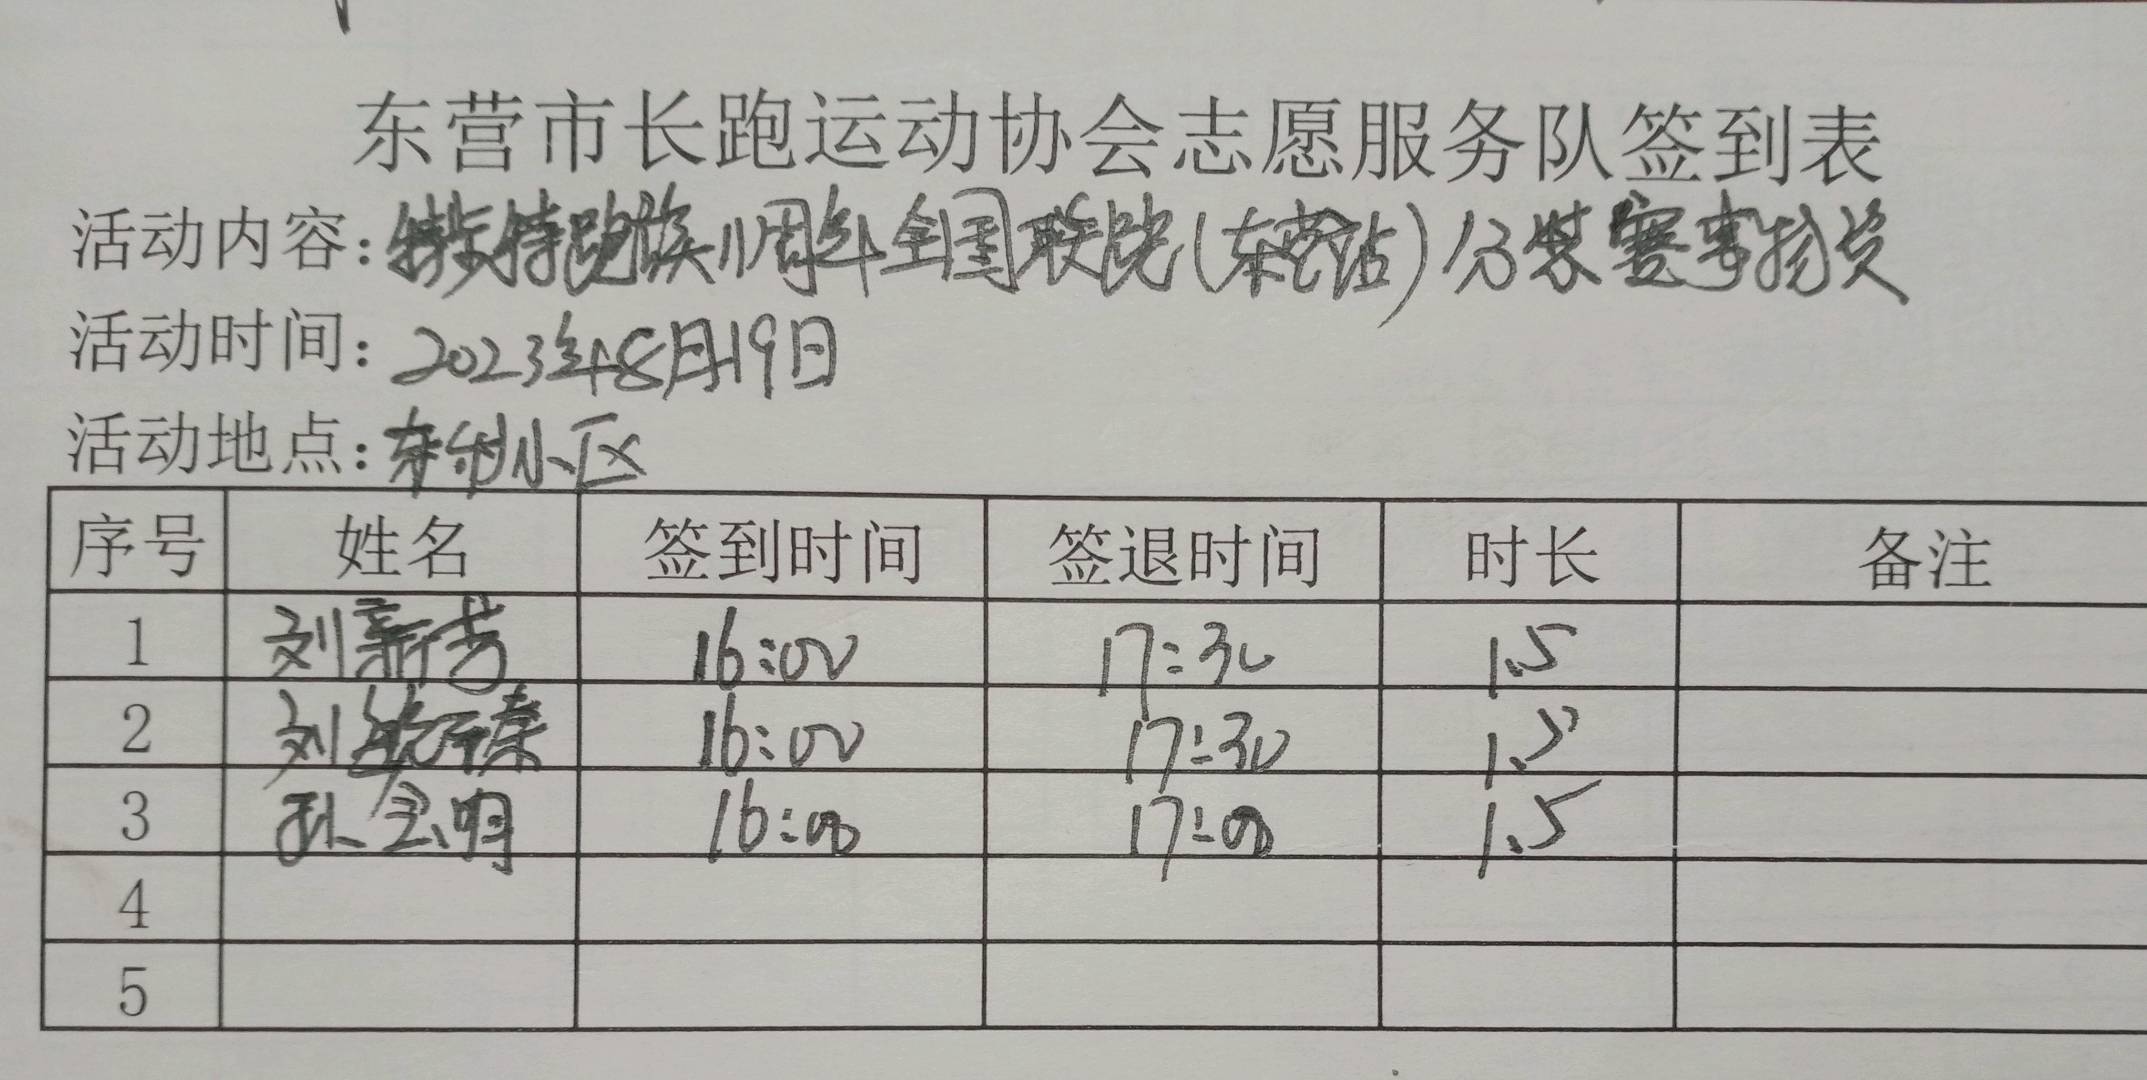 东营市长跑运动协会志愿服务队签到表
活动内容:特步特跑族11周年全国联跑(东营站)分装赛事物资
活动时间:2023年8月19日
活动地点:东创小区
序号 姓名 签到时间 签退时间 时长 备注
1 刘新芳 16:00 17:30 1.5
2 刘 臻 16:00 17:30 1.5
3 孙会明 16:00 17:00 1.5
4
5